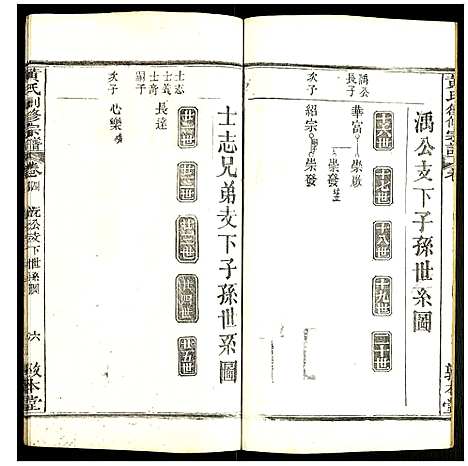 禹公支下子孫世系圖
十六世
十七世
十八世
十九世
二十世
禹公
長子
華富
崇嶽
崇發
次子
紹宗
崇發
敦本堂
士志兄弟支下子孫世系圖
廿一世
廿二世
廿三世
廿四世
廿五世
士志
士義
士奇
嗣子
長達
次子
心樂
黃氏創修宗譜
卷四
支下世系圖
六
敦本堂